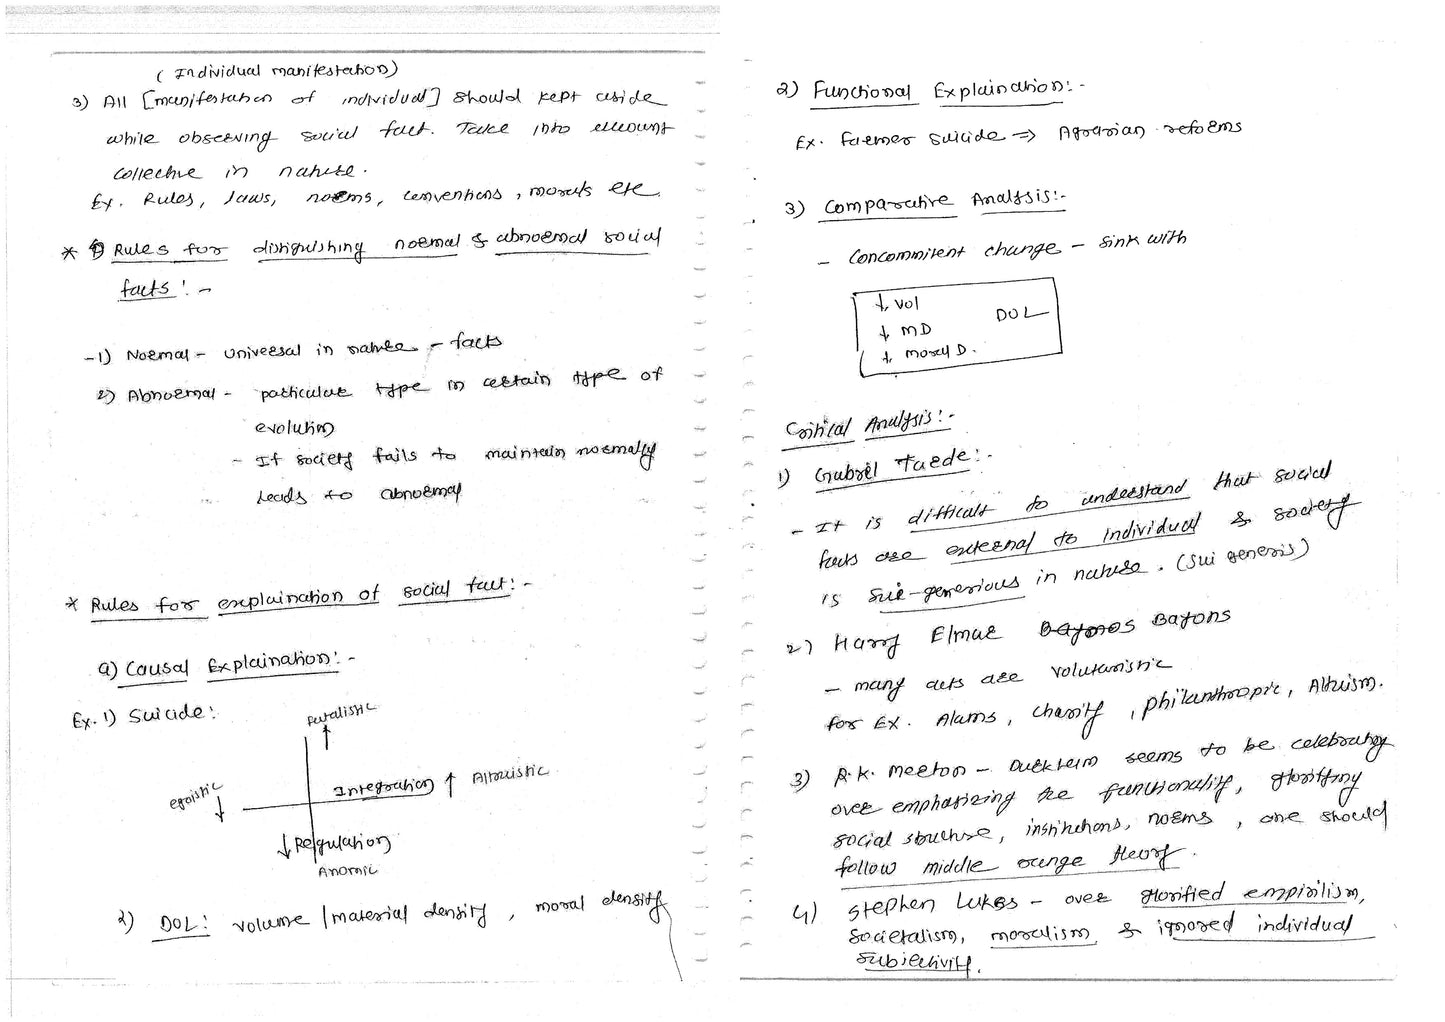 ( Individual manifestation)
3) All [manifestation of individual] should kept aside
while observing social fact. Take into account
collective in nature.
Ex. Rules, laws, norms, conventions, morals etc.
* Rules for distinguishing normal & abnormal social
facts :-
-1) Normal - universal in nature - facts
2) Abnormal - particular type in certain type of
evolution
- If society fails to maintain normally
leads to abnormal
* Rules for explaination of social fact :-
a) Causal Explaination :-
Ex. 1) Suicide :
fatalistic
↑
egoistic
↓
Integration ↑ Altruistic
↓ Regulation
Anomic
2) DOL : volume / material density, moral density
2) Functional Explaination :-
Ex. Farmer suicide ⇒ Agrarian reforms
3) Comparative Analysis :-
- Concommitent change - sink with
↓ Vol
↓ MD DOL
↓ moral D.
Critical Analysis :-
1) Gabriel Tarde :-
- It is difficult to understand that social
facts are external to individual & society
is sui-generious in nature. (Sui generis)
2) Harry Elmar Bayons
- many acts are voluturistic
for Ex. Alams, charity, philanthropic, Altruism.
3) R.K. Merton - Durkheim seems to be celebrating
over emphasizing the functionality, glorifying
social structure, institutions, norms, one should
follow middle range theory.
4) Stephen Lukes - over glorified empirilism,
societalism, moralism & ignored individual
subjectivity.